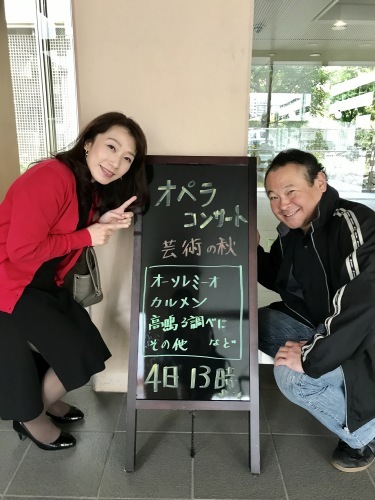 オペラ
コンサート
芸術の秋
オーソルミーオ
カルメン
高鳴る調べに
その他 など
4日 13時